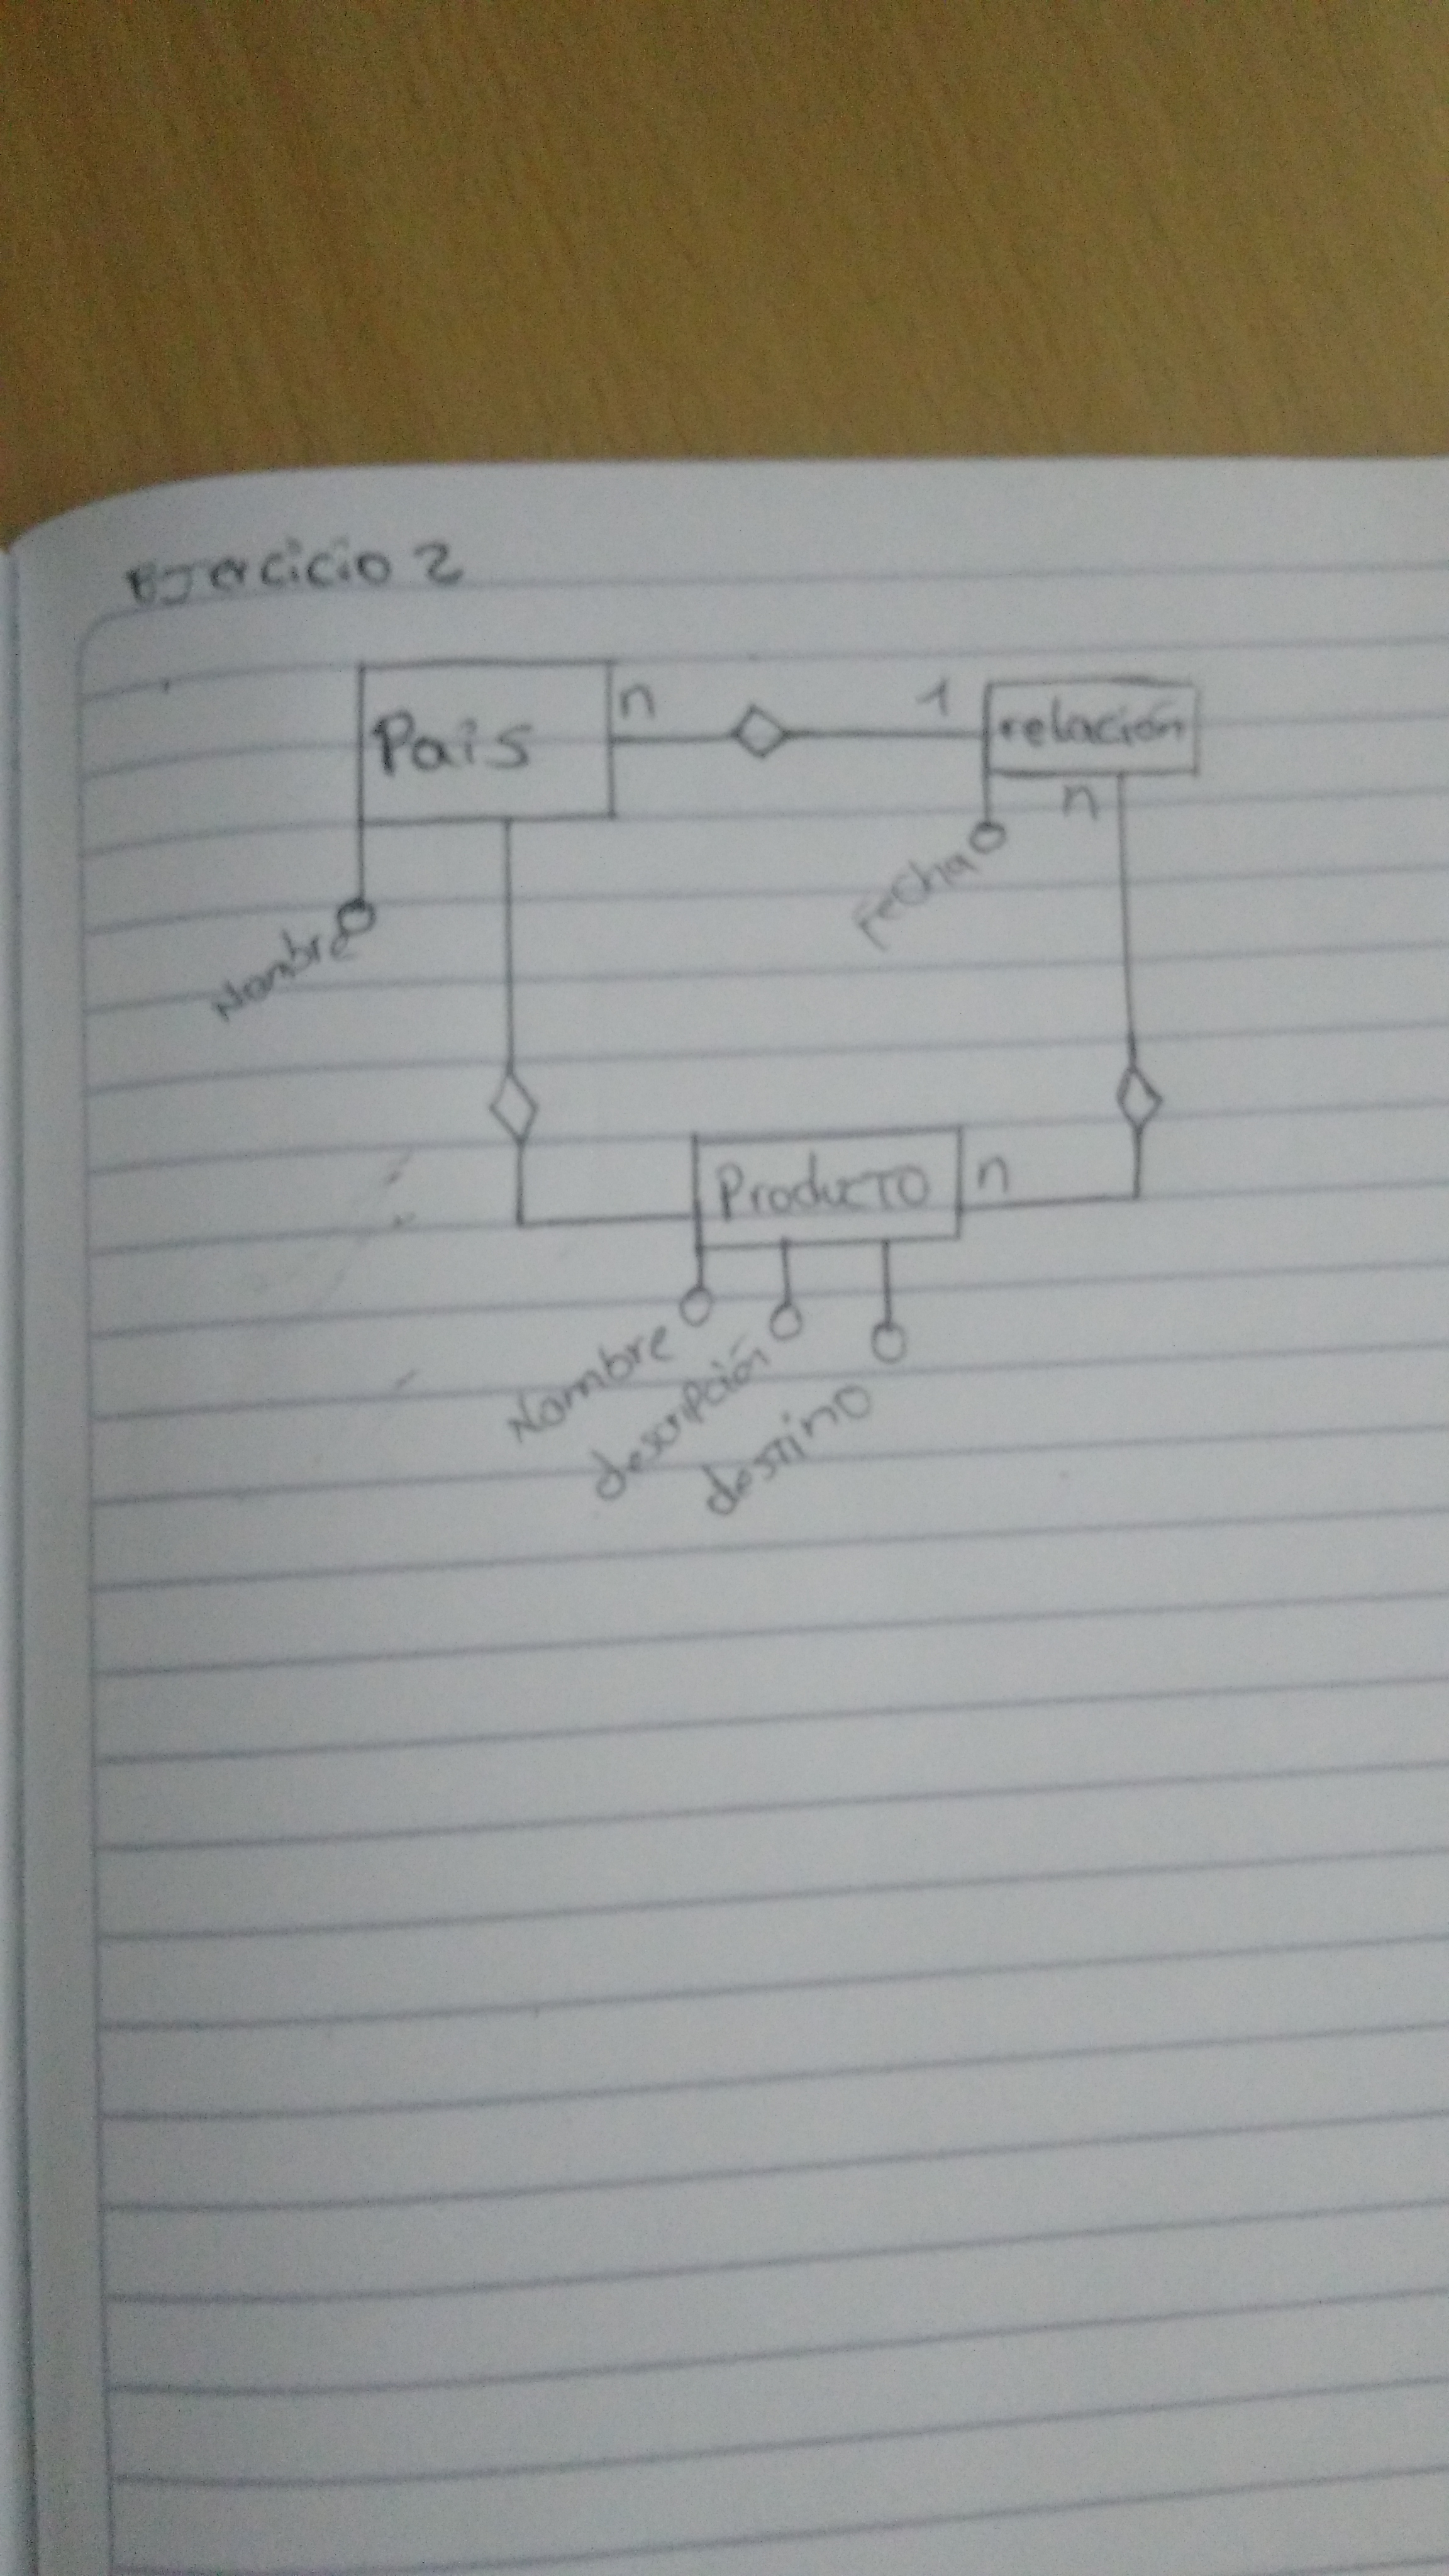 Ejercicio 2
Pais
n
1
relación
n
Fecha
Nombre
Producto
n
Nombre
descripción
destino